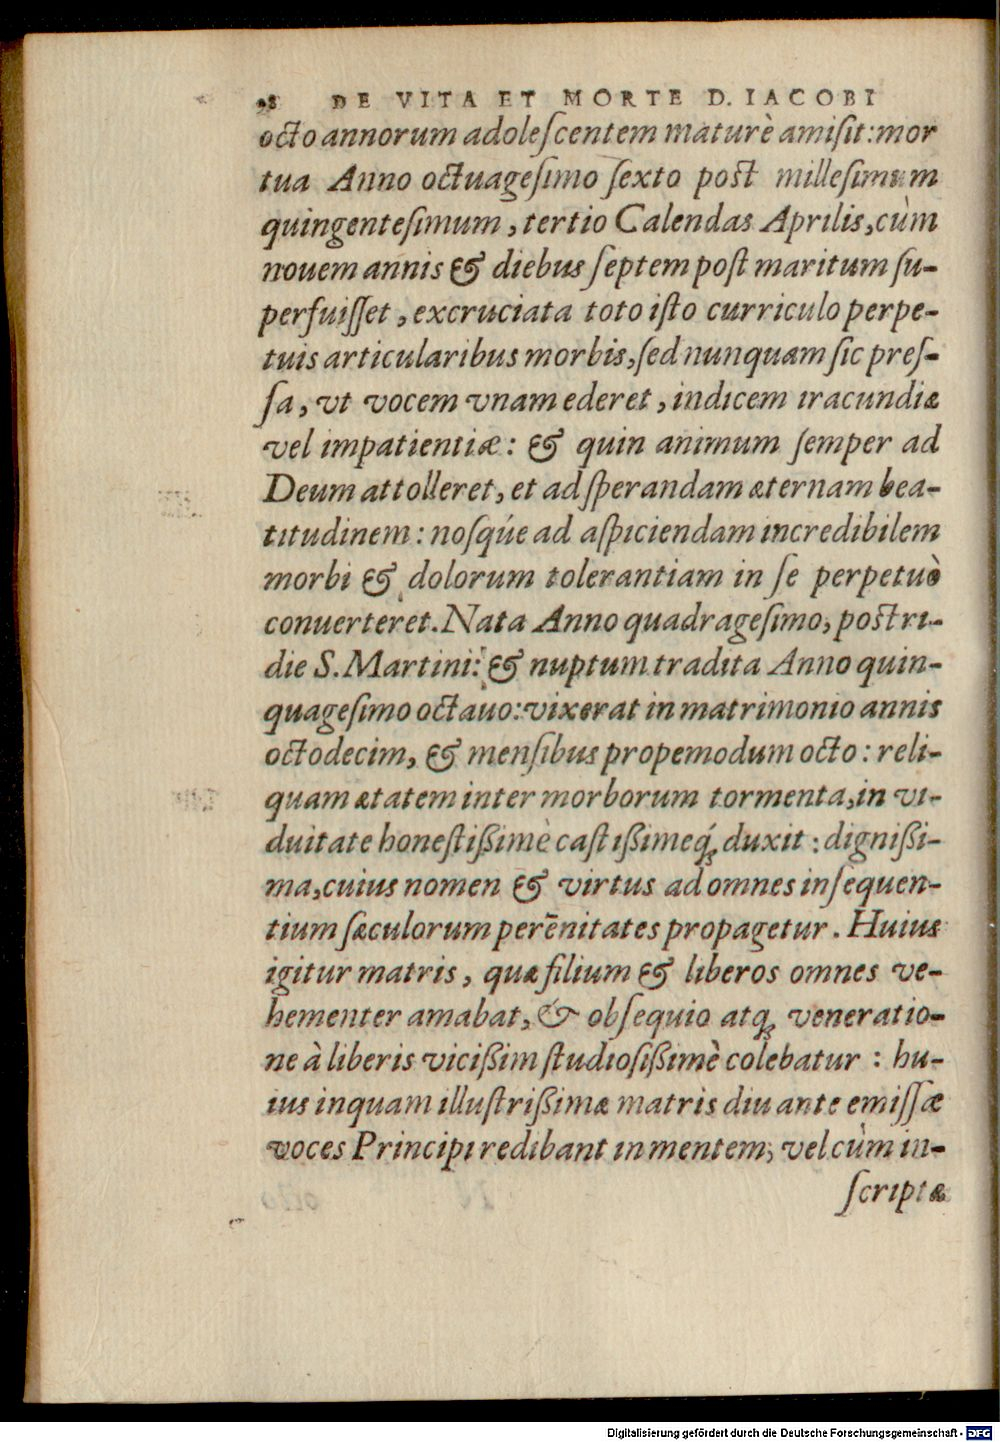 98 DE VITA ET MORTE D. IACOBI
octo annorum adoleſcentem maturè amiſit: mor
tua Anno octuageſimo ſexto poſt milleſimum
quingenteſimum, tertio Calendas Aprilis, cùm
nouem annis & diebus ſeptem poſt maritum ſu-
perfuiſſet, excruciata toto iſto curriculo perpe-
tuis articularibus morbis, ſed nunquam ſic preſ-
ſa, vt vocem vnam ederet, indicem iracundiæ
vel impatientiæ: & quin animum ſemper ad
Deum attolleret, et ad ſperandam æternam bea-
titudinem: noſqúe ad aſpiciendam incredibilem
morbi & dolorum tolerantiam in ſe perpetuò
conuerteret. Nata Anno quadrageſimo, poſtri-
die S. Martini: & nuptum tradita Anno quin-
quageſimo octauo: vixerat in matrimonio annis
octodecim, & menſibus propemodum octo: reli-
quam ætatem inter morborum tormenta, in vi-
duitate honeſtißimè caſtißimeq́; duxit: dignißi-
ma, cuius nomen & virtus ad omnes inſequen-
tium ſæculorum perēnitates propagetur. Huius
igitur matris, quæ filium & liberos omnes ve-
hementer amabat, & obſequio atq; veneratio-
ne à liberis vicißim ſtudioſißimè colebatur: hu-
ius inquam illuſtrißimæ matris diu ante emiſſæ
voces Principi redibant in mentem; vel cùm in-
ſcriptæ
Digitalisierung gefördert durch die Deutsche Forschungsgemeinschaft - DFG